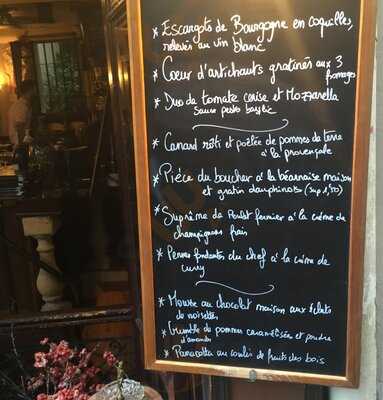 * Escargots de Bourgogne en coquilles,
relevés au vin
blanc
* Coeur d'artichauts gratinés aux 3
fromages
* Duo de tomate cerise et Mozzarella
sauce pesto basilic
* Canard rôti et poêlée de pommes de terre
à la provençale
* Pièce du boucher à la béarnaise maison
et gratin dauphinois (sup 1,50)
* Suprême de Poulet fermier à la crème de
champignons frais
* Pennes fondantes du chef à la crème de
curry
* Mousse au chocolat maison aux éclats
de noisettes
* Crumble de pommes caramélisées et poudre
d'amandes
* Panacotta au coulis de fruits des bois